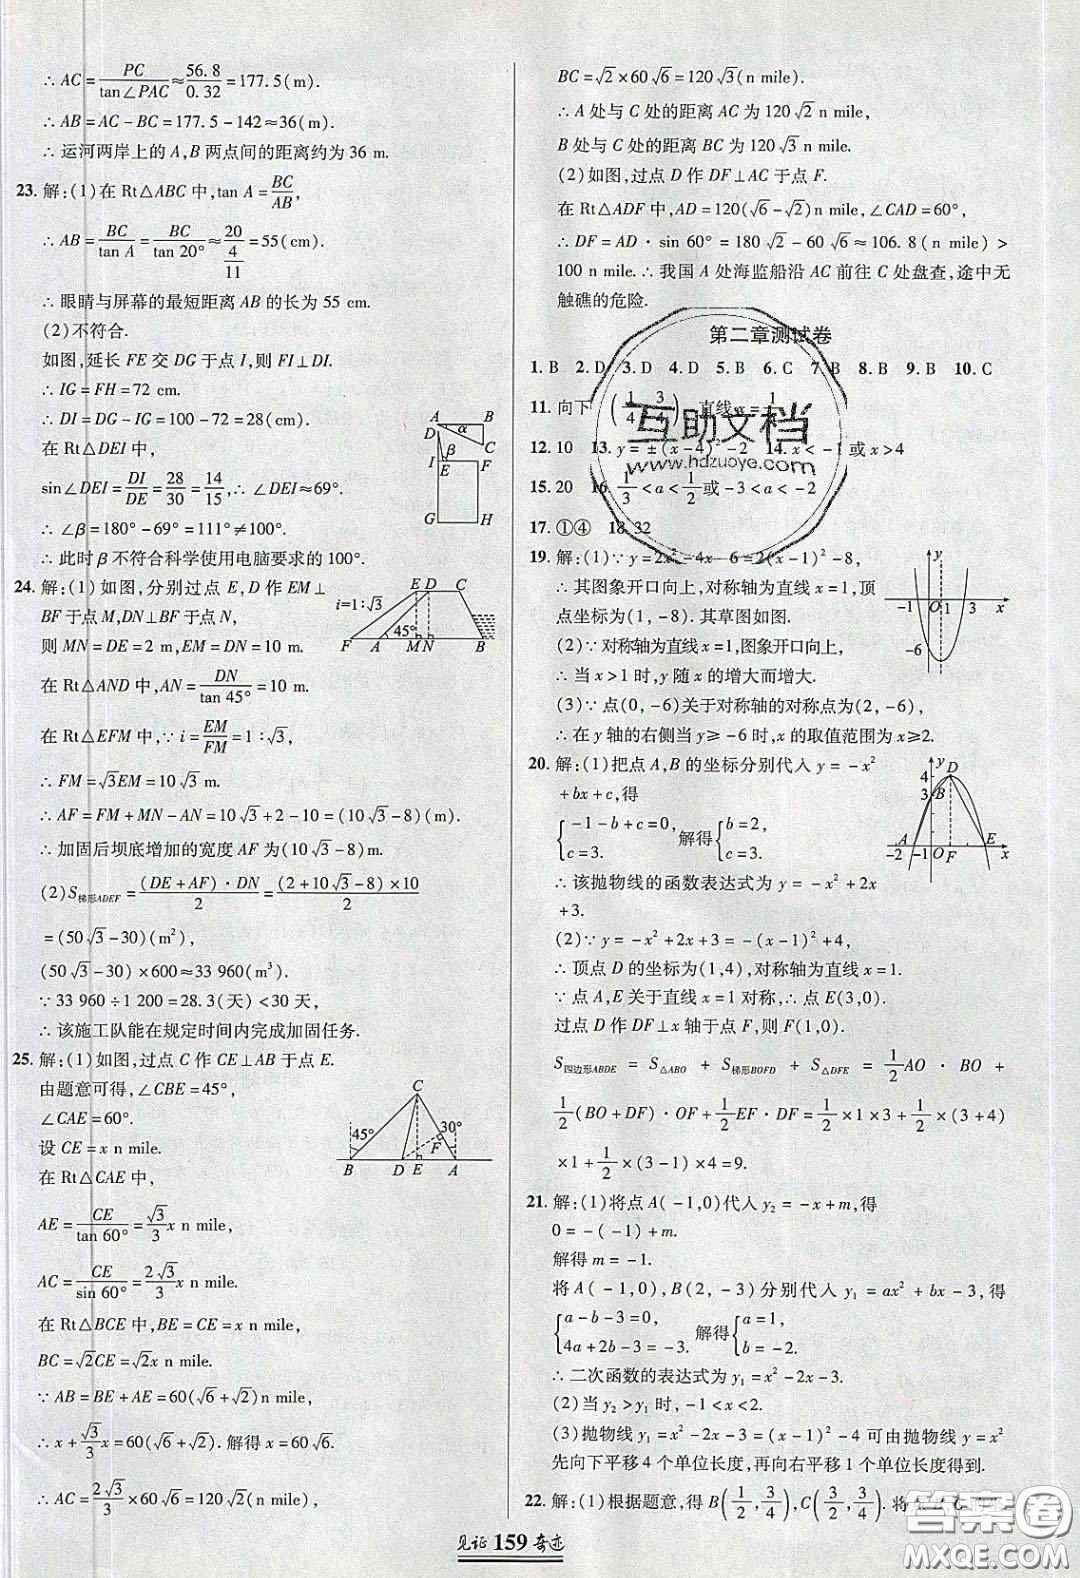 ∴ AC = PC/tan∠PAC ≈ 56.8/0.32 = 177.5(m).
∴ AB = AC - BC = 177.5 - 142 ≈ 36(m).
∴ 运河两岸上的 A,B 两点间的距离约为 36 m.
23. 解:(1)在 Rt△ABC 中,tan A = BC/AB,
∴ AB = BC/tan A = BC/tan 20° ≈ 20/(4/11) = 55(cm).
∴ 眼睛与屏幕的最短距离 AB 的长为 55 cm.
(2)不符合.
如图,延长 FE 交 DG 于点 I,则 FI⊥DI.
∴ IG = FH = 72 cm.
∴ DI = DG - IG = 100 - 72 = 28(cm).
在 Rt△DEI 中,
sin∠DEI = DI/DE = 28/30 = 14/15,∴ ∠DEI ≈ 69°.
∴ ∠β = 180° - 69° = 111° ≠ 100°.
∴ 此时 β 不符合科学使用电脑要求的 100°.
A B α D C β I E F G H
24. 解:(1)如图,分别过点 E,D 作 EM⊥
BF 于点 M,DN⊥BF 于点 N,
则 MN = DE = 2 m,EM = DN = 10 m.
在 Rt△AND 中,AN = DN/tan 45° = 10 m.
在 Rt△EFM 中,∵ i = EM/FM = 1∶√3,
∴ FM = √3EM = 10√3 m.
∴ AF = FM + MN - AN = 10√3 + 2 - 10 = (10√3 - 8)(m).
∴ 加固后坝底增加的宽度 AF 为(10√3 - 8)m.
(2)S梯形ADEF = (DE + AF)·DN/2 = (2 + 10√3 - 8)×10/2
= (50√3 - 30)(m²),
(50√3 - 30)×600 ≈ 33 960(m³).
∵ 33 960 ÷ 1 200 = 28.3(天) < 30 天,
∴ 该施工队能在规定时间内完成加固任务.
E D C i=1∶√3 45° F A M N B
25. 解:(1)如图,过点 C 作 CE⊥AB 于点 E.
由题意可得,∠CBE = 45°,
∠CAE = 60°.
设 CE = x n mile.
在 Rt△CAE 中,
AE = CE/tan 60° = √3/3 x n mile,
AC = CE/sin 60° = 2√3/3 x n mile.
在 Rt△BCE 中,BE = CE = x n mile,
BC = √2CE = √2x n mile.
∵ AB = BE + AE = 60(√6 + √2) n mile,
∴ x + √3/3 x = 60(√6 + √2). 解得 x = 60√6.
∴ AC = 2√3/3 × 60√6 = 120√2(n mile),
C 45° 30° F B D E A
BC = √2 × 60√6 = 120√3(n mile).
∴ A 处与 C 处的距离 AC 为 120√2 n mile,
B 处与 C 处的距离 BC 为 120√3 n mile.
(2)如图,过点 D 作 DF⊥AC 于点 F.
在 Rt△ADF 中,AD = 120(√6 - √2) n mile,∠CAD = 60°,
∴ DF = AD·sin 60° = 180√2 - 60√6 ≈ 106.8(n mile) >
100 n mile. ∴ 我国 A 处海监船沿 AC 前往 C 处盘查,途中无
触礁的危险.
第二章测试卷
1. B 2. D 3. D 4. D 5. B 6. C 7. B 8. B 9. B 10. C
11. 向下 直线 x =
12. 10 13. y = ±(x - 4)² - 2 14. x < -1 或 x > 4
15. 20 16. 1/3 < a < 1/2 或 -3 < a < -2
17. ①④ 18. 32
19. 解:(1)∵ y = 2x² - 4x - 6 = 2(x - 1)² - 8,
∴ 其图象开口向上,对称轴为直线 x = 1,顶
点坐标为(1, -8). 其草图如图.
(2)∵ 对称轴为直线 x = 1,图象开口向上,
∴ 当 x > 1 时,y 随 x 的增大而增大.
(3)∵ 点(0, -6)关于对称轴的对称点为(2, -6),
∴ 在 y 轴的右侧当 y ≥ -6 时,x 的取值范围为 x ≥ 2.
y -1 O 1 3 x -6
20. 解:(1)把点 A,B 的坐标分别代入 y = -x²
+ bx + c,得
{-1 - b + c = 0, c = 3. 解得 {b = 2, c = 3.
∴ 该抛物线的函数表达式为 y = -x² + 2x
+ 3.
(2)∵ y = -x² + 2x + 3 = -(x - 1)² + 4,
∴ 顶点 D 的坐标为(1,4),对称轴为直线 x = 1.
∵ 点 A,E 关于直线 x = 1 对称,∴ 点 E(3,0).
过点 D 作 DF⊥x 轴于点 F,则 F(1,0).
S四边形ABDE = S△ABO + S梯形BOFD + S△DFE = 1/2 AO · BO +
1/2(BO + DF)·OF + 1/2 EF·DF = 1/2 × 1 × 3 + 1/2 × (3 + 4)
× 1 + 1/2 × (3 - 1) × 4 = 9.
y 4 D 3 B A E -2 -1 O F x
21. 解:(1)将点 A(-1,0)代入 y₂ = -x + m,得
0 = -(-1) + m.
解得 m = -1.
将 A(-1,0),B(2, -3)分别代入 y₁ = ax² + bx - 3,得
{a - b - 3 = 0, 4a + 2b - 3 = -3. 解得 {a = 1, b = -2.
∴ 二次函数的表达式为 y₁ = x² - 2x - 3.
(2)当 y₂ > y₁ 时, -1 < x < 2.
(3)抛物线 y₁ = x² - 2x - 3 = (x - 1)² - 4 可由抛物线 y = x²
先向下平移 4 个单位长度,再向右平移 1 个单位长度得到.
22. 解:(1)根据题意,得 B(1/2, 3/4),C(3/2, 3/4). 将
互助文档
www.hdzuoye.com
答案圈
MXQE.COM
见证 159 奇迹